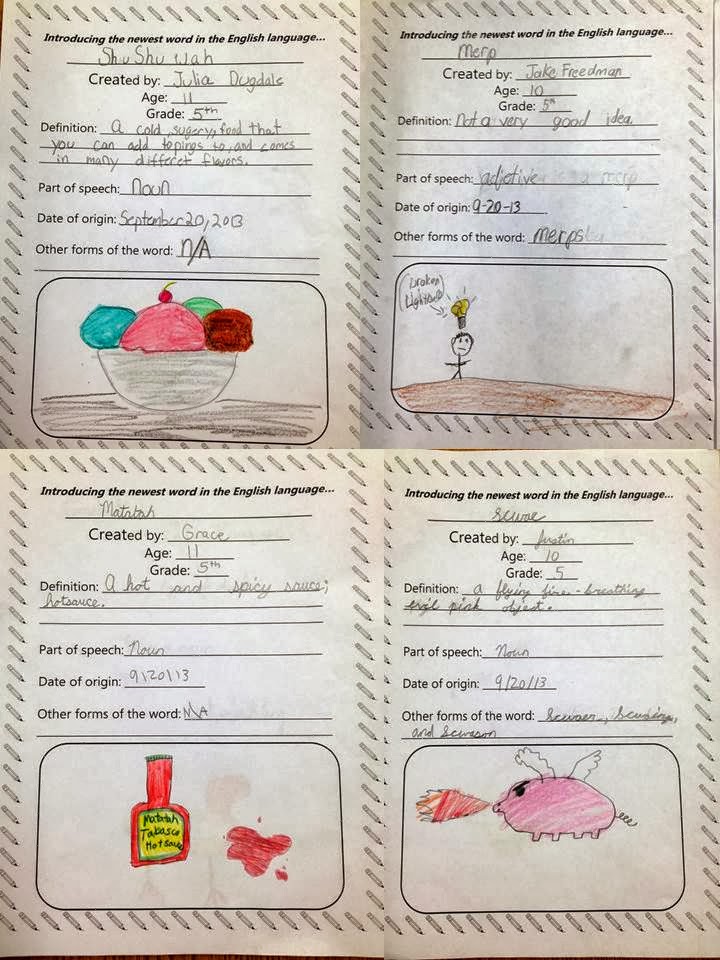 Introducing the newest word in the English language...
Shu Shu Wah
Created by: Julia Dugdale
Age: 11
Grade: 5th
Definition: A cold sugery, food that
you can add topings to, and comes
in many differet flavors.
Part of speech: Noun
Date of origin: September 20, 2013
Other forms of the word: n/A
Introducing the newest word in the English language...
Merp
Created by: Jake Freedman
Age: 10
Grade: 5th
Definition: Not a very good idea.
Part of speech: adjetive
Date of origin: 9-20-13
Other forms of the word: merps
(broken
Lightbulb)
Introducing the newest word in the English language...
Matatah
Created by: Grace
Age: 11
Grade: 5th
Definition: A hot and spicy sauce;
hotsauce.
Part of speech: Noun
Date of origin: 9/20/13
Other forms of the word: N\A
Matatah
Tabasco
Hot sauce
Introducing the newest word in the English language...
Created by: Justin
Age: 10
Grade: 5
Definition: a flying fire-breathing
evil pink object.
Part of speech: Noun
Date of origin: 9/20/13
Other forms of the word:
and